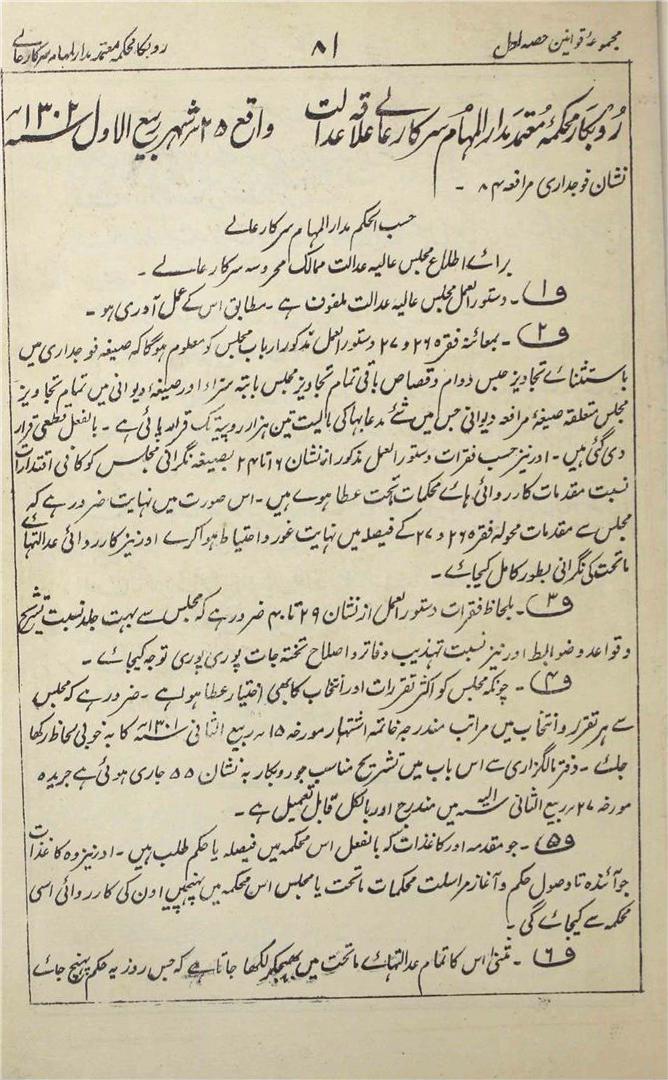 مجموعۂ قوانین حصہ اول
۸۱
روبکار محکمہ معتمد مدارالمہام سرکار عالی
رُوبکار محکمۂ معتمد مدارالمہام سرکار عالے علاقہ عدالت واقع ۲۵ شہر ربیع الاول سنہ ۱۳۰۲
نشان فوجداری مرافعہ ۸۴ -
حسب الحکم مدارالمہام سرکار عالے
برائے اطلاع مجلس عالیہ عدالت ممالک محروسہ سرکار عالے -
ف۱ - دستورالعمل مجلس عالیہ عدالت ملفوف ہے - مطابق اس کے عمل آوری ہو -
ف۲ - بمعائنہ فقرہ ۲۶ و ۲۷ دستورالعمل مذکور ارباب مجلس کو معلوم ہوگا کہ صیغہ فوجداری میں
باستثنائے تجاویز حبس دوام و قصاص باقی تمام تجاویز مجلس بابتہ سزا، اور صیغۂ دیوانی میں تمام تجاویز
مجلس متعلقہ صیغۂ مرافعہ دیوانی جس میں شئے مدعابہا کی مالیت تین ہزار روپیہ تک قرار پائی ہے - بالفعل قطعی قرار
دی گئی ہیں - اور نیز حسب فقرات دستورالعمل مذکور از نشان ۱۶ تا ۲۴ بصیغہ نگرانی مجلس کو کافی اقتدارات
نسبت مقدمات کارروائی ہائے محکمات تحت عطا ہوے ہیں - اس صورت میں نہایت ضرور ہے کہ
مجلس سے مقدمات محولہ فقرہ ۲۶ و ۲۷ کے فیصلہ میں نہایت غور و احتیاط ہوا کرے اور نیز کارروائی عدالتہائے
ماتحت کی نگرانی بطور کامل کیجائے -
ف۳ - بلحاظ فقرات دستورالعمل از نشان ۲۹ تا ۴۰ ضرور ہے کہ مجلس سے بہت جلد نسبت تشریح
و قواعد و ضوابط اور نیز نسبت تہذیب دفاتر و اصلاح تختہ جات پوری پوری توجہ کیجائے -
ف۴ - چونکہ مجلس کو اکثر تقررات اور انتخاب کا بھی اختیار عطا ہوا ہے - ضرور ہے کہ مجلس
سے ہر تقرر و انتخاب میں مراتب مندرجہ خاتمہ اشتہار مورخہ ۱۵ ربیع الثانی سنہ ۱۳۰۱ کا بہ خوبی لحاظ رکھا
جائے - دفتر مالگزاری سے اس باب میں تشریح مناسب جو روبکار بہ نشان ۵۵ جاری ہوئی ہے جریدہ
مورخہ ۲۷ ربیع الثانی سنہ الیہ میں مندرج اور بالکل قابل تعمیل ہے -
ف۵ - جو مقدمہ اور کاغذات کہ بالفعل اس محکمہ میں فیصلہ یا حکم طلب ہیں - اور نیز وہ کاغذات
جو آئندہ تا وصول حکم و آغاز مراسلت محکمات ماتحت یا مجلس اس محکمہ میں پہنچیں اون کی کارروائی اسی
محکمہ سے کیجائے گی -
ف۶ - مثنیٰ اس کا تمام عدالتہائے ماتحت میں بھیجکر لکھا جاتا ہے کہ جس روز یہ حکم پہنچ جائے